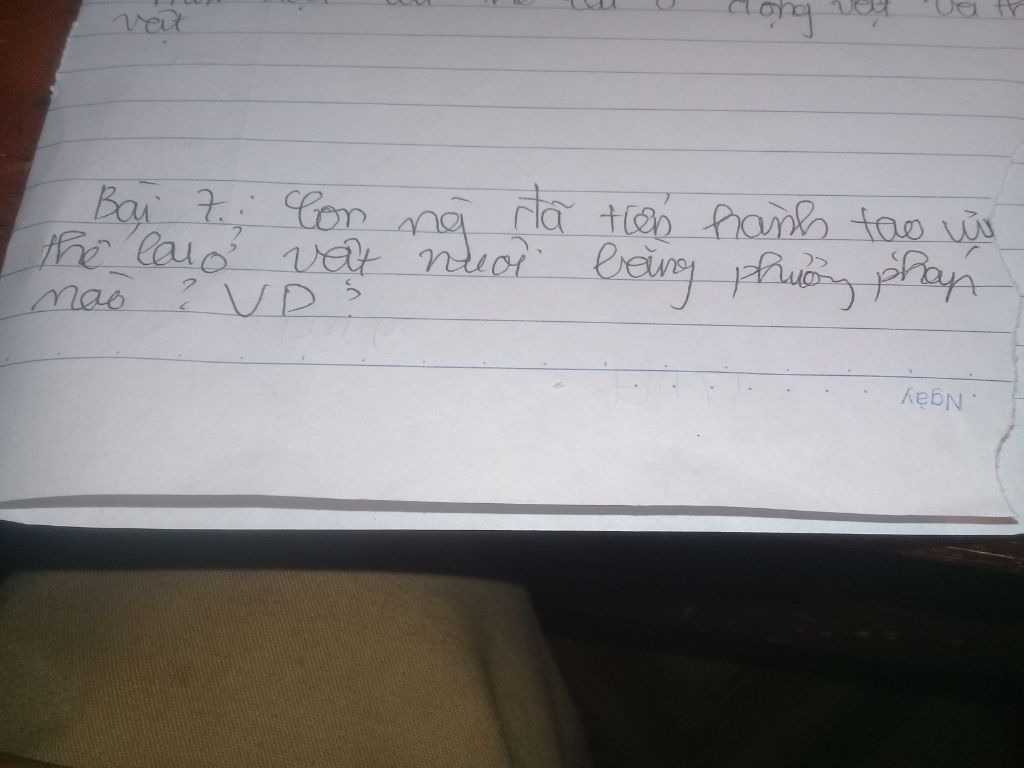 động vật và
vật
Bài 7: Con ng đã tiến hành tạo ưu
thế lai ở vật nuôi bằng phương pháp
nào? VD?
Ngày